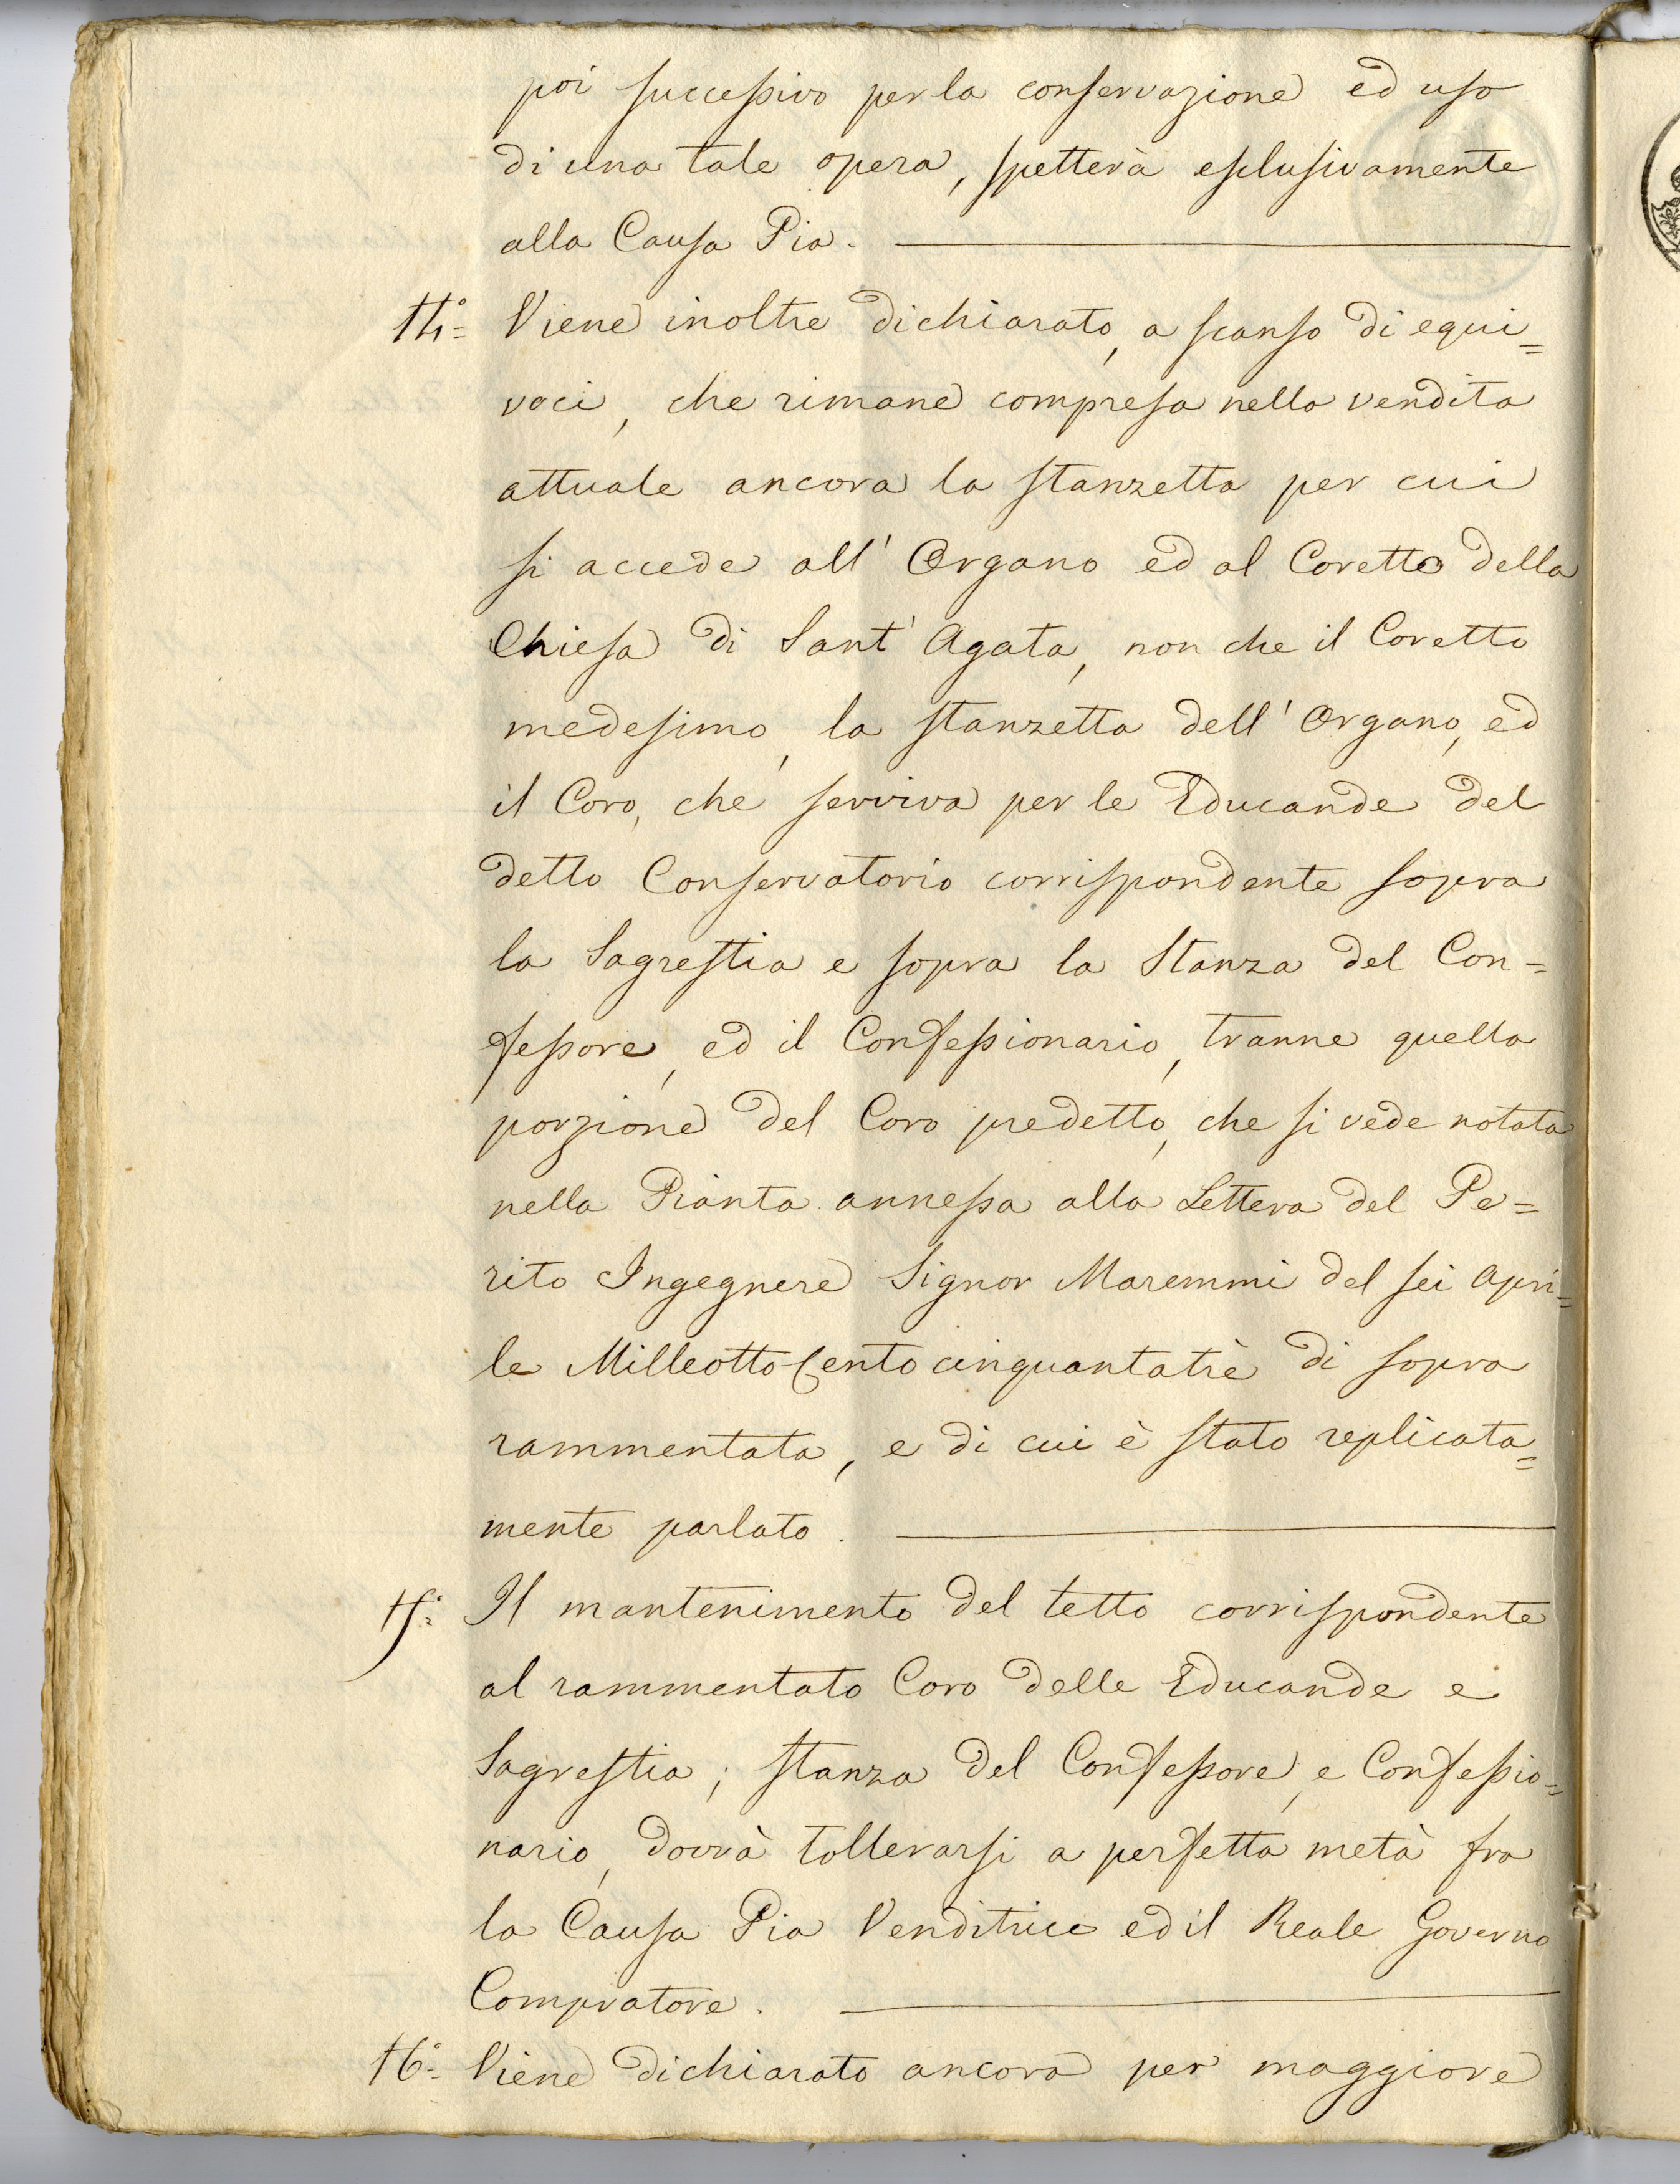 poi successivo per la conservazione ed uso
di una tale opera, spetterà esclusivamente
alla Causa Pia.
14.° Viene inoltre dichiarato, a scanso di equi=
voci, che rimane compresa nella vendita
attuale ancora la stanzetta per cui
si accede all' Organo ed al Coretto della
Chiesa di Sant' Agata, non che il Coretto
medesimo, la stanzetta dell' Organo, ed
il Coro, che serviva per le Educande del
detto Conservatorio corrispondente sopra
la Sagrestia e sopra la Stanza del Con=
fessore, ed il Confessionario, tranne quella
porzione del Coro predetto, che si vede notata
nella Pianta annessa alla Lettera del Pe=
rito Ingegnere Signor Maremmi del sei Apri=
le MilleottoCento cinquantatrè di sopra
rammentata, e di cui è stato replicata=
mente parlato.
15.° Il mantenimento del tetto corrispondente
al rammentato Coro delle Educande e
Sagrestia; stanza del Confessore, e Confessio=
nario, dovrà tollerarsi a perfetta metà fra
la Causa Pia Venditrice ed il Reale Governo
Compratore.
16.° Viene dichiarato ancora per maggiore